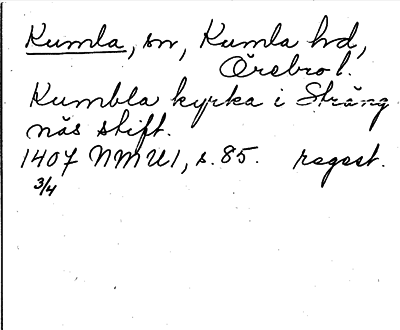 Kumla, sn, Kumla hd,
Örebro l.
Kumbla kyrka i Sträng
näs stift.
1407 NMU1, s. 85. regest.
3/4